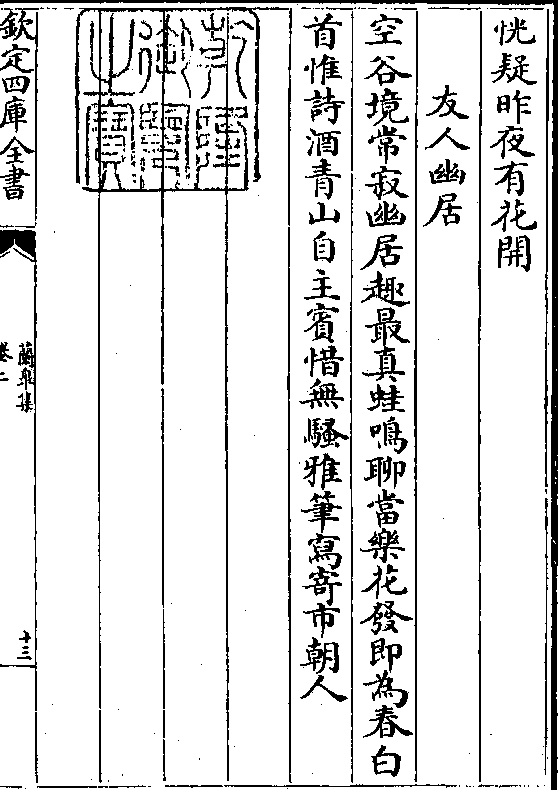 恍疑昨夜有花開
友人幽居
空谷境常寂幽居趣最真蛙鳴聊當樂花發即為春白
首惟詩酒青山自主賓惜無騷雅筆寫寄市朝人
乾隆
御覽
之寶
欽定四庫全書
蘭皋集
卷二
十三